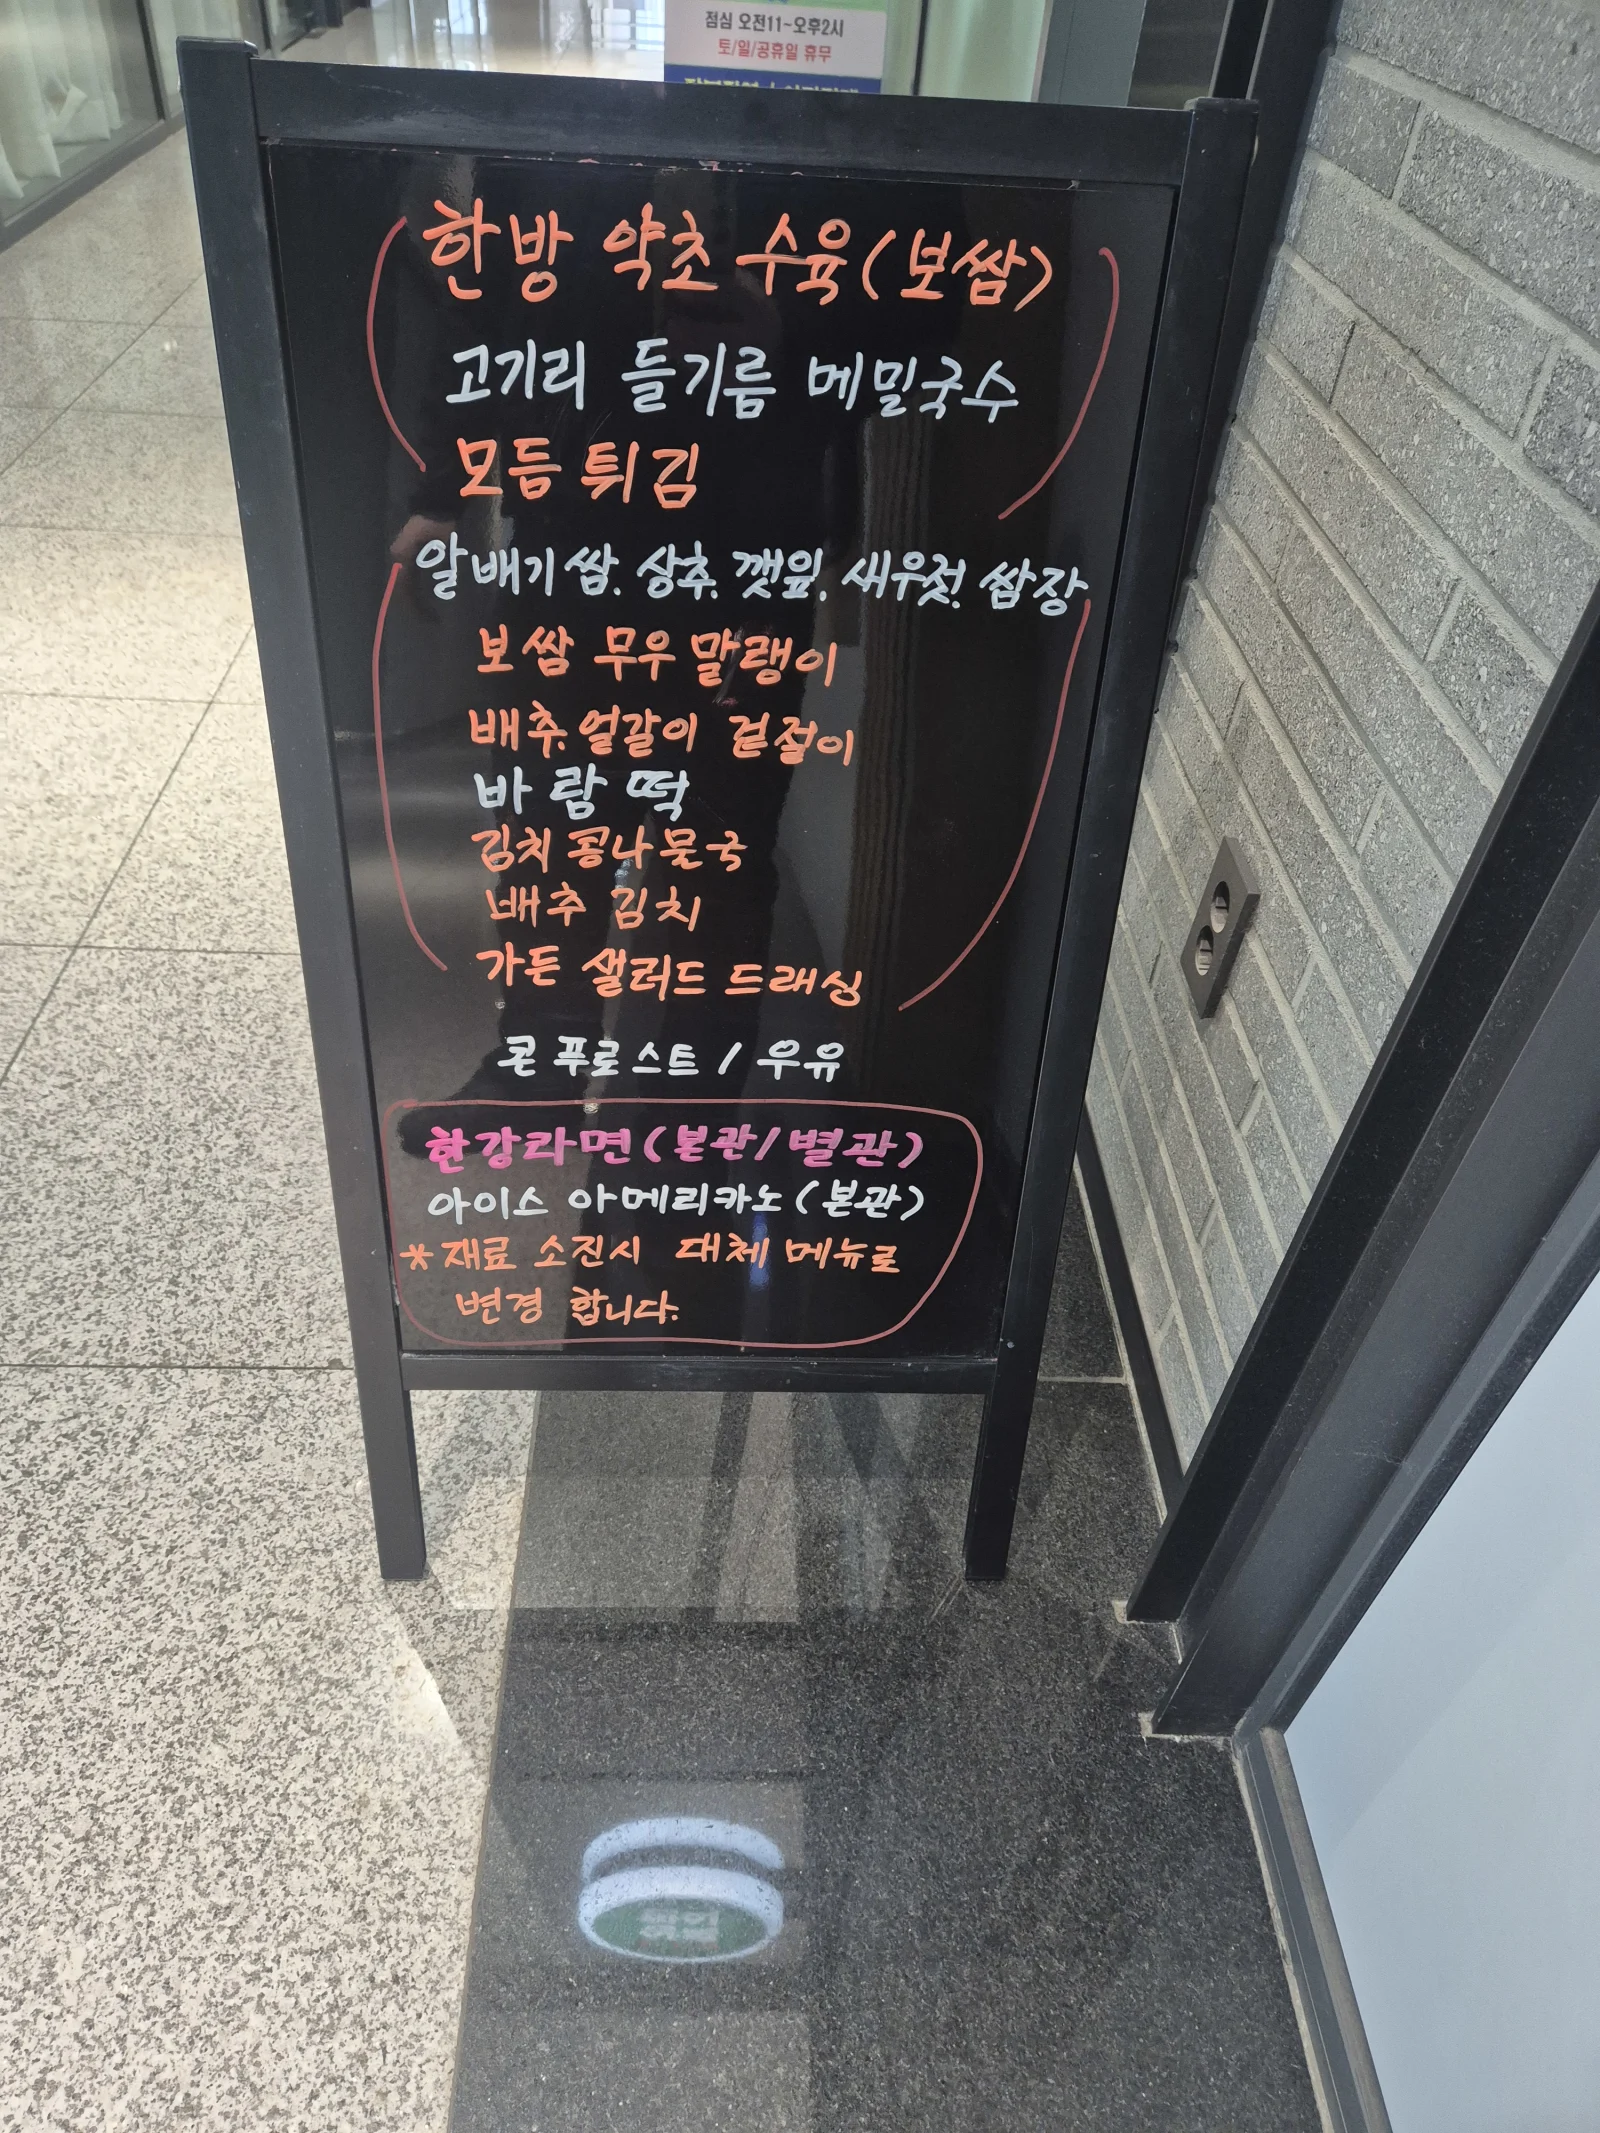 점심 오전11~오후2시
토/일/공휴일 휴무
한방 약초 수육(보쌈)
고기리 들기름 메밀국수
모듬 튀김
알배기쌈. 상추. 깻잎. 새우젓. 쌈장
보쌈 무우 말랭이
배추.얼갈이 겉절이
바람떡
김치콩나물국
배추 김치
가든 샐러드 드래싱
콘 푸로스트 / 우유
한강라면(본관/별관)
아이스 아메리카노(본관)
*재료 소진시 대체 메뉴로
변경 합니다.